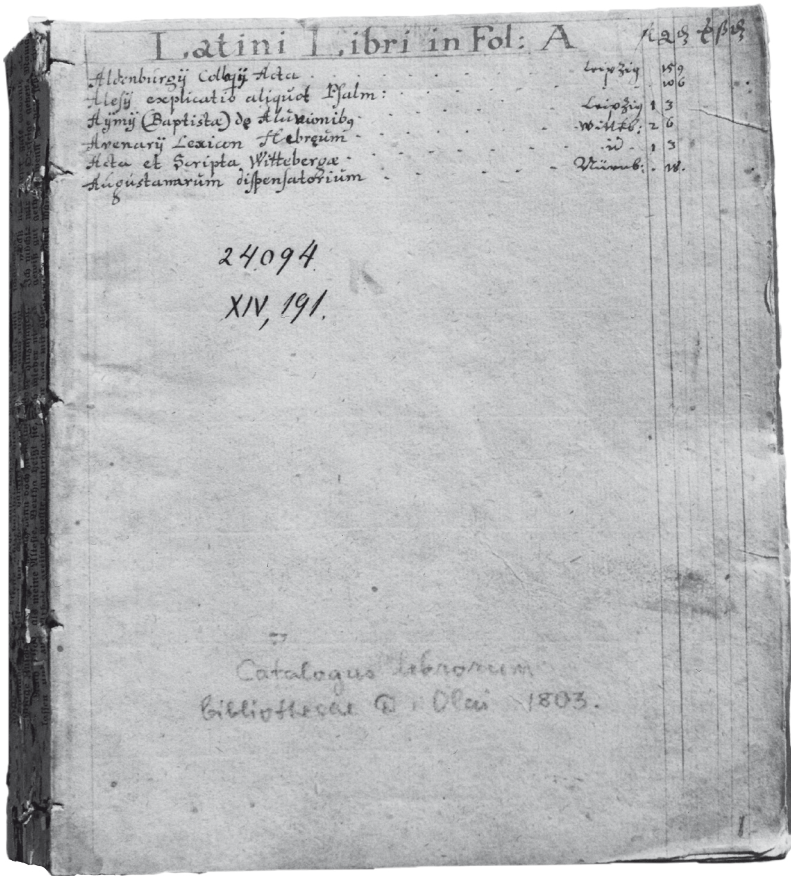 Latini Libri in Fol: A
Aldenburgij Colloqij Acta Leipzig 159
Alesij explicatio aliquot Psalm: 106
Aymij (Baptista) de Alluvionibq Leipzig 1 3
Avenarij Lexicon Hebreum Wittb: 2 6
Acta et Scripta Wittebergæ id 1 3
Augustanarum dispensatorium Nürnb: 18.
8
24094
XIV, 191.
Catalogus librorum
bibliothecae D Olai 1803.
1